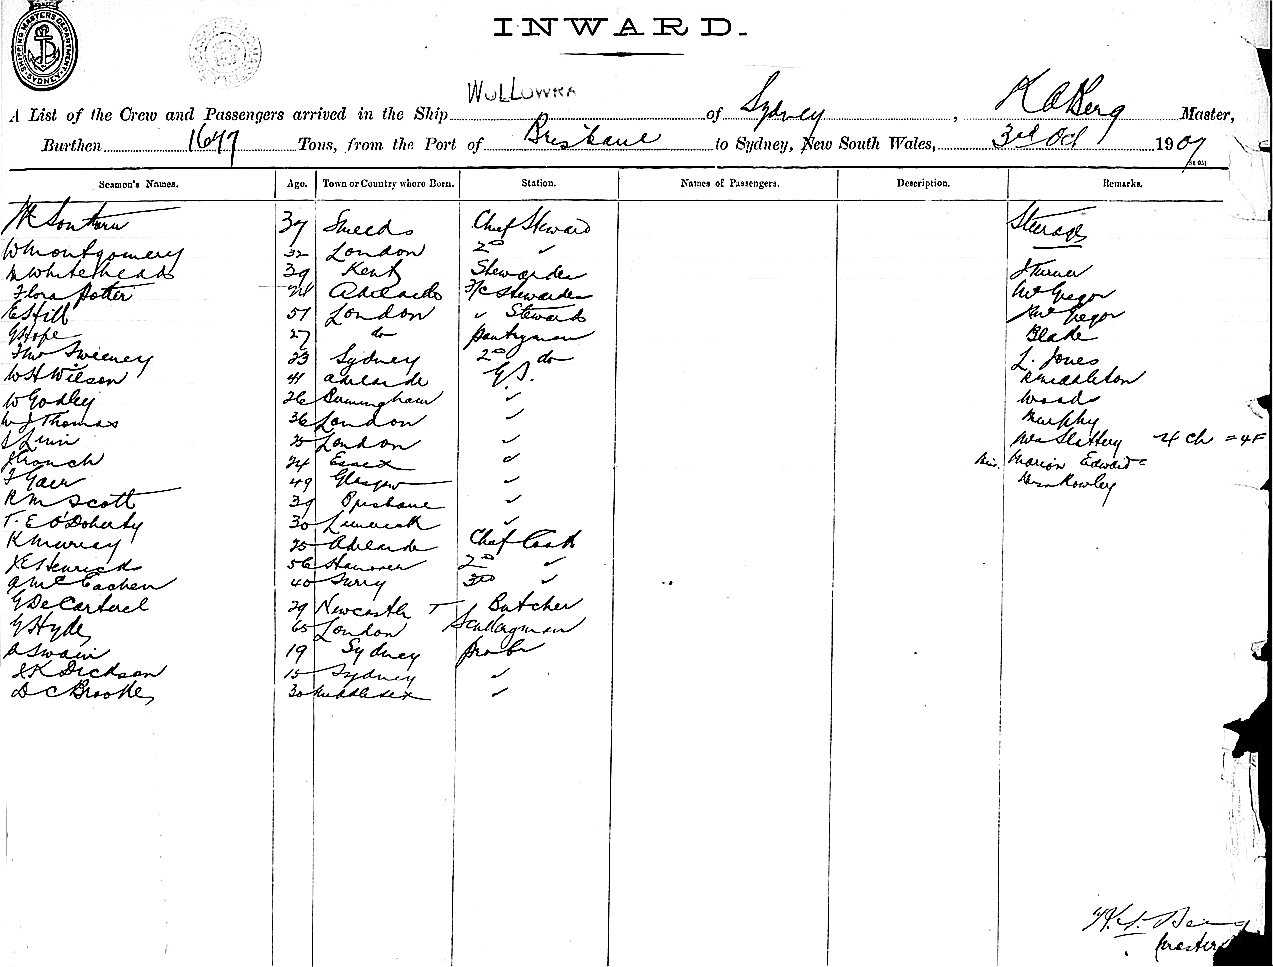 INWARD.
SHIPPING MASTERS DEPARTMENT SYDNEY
WOLLOWRA
A List of the Crew and Passengers arrived in the Ship of Sydney, K A Berg Master,
Burthen 1647 Tons, from the Port of Brisbane to Sydney, New South Wales, 3rd Oct 1907
Seamen's Names. Age. Town or Country where Born. Station. Names of Passengers. Description. Remarks.
37 Chief Steward Steerage
W Montgomery 32 London 2nd "
M Whitehead 39 Kent Stewardess J Turner
Flora Potter Adelaide F/C Stewardess McGregor
E S Hill 51 London " Steward McGregor
G Hope 27 do Pantryman Blake
Sweeney 23 Sydney 2nd do L. Jones
W H Wilson 41 Adelaide G.S. R Middleton
W Godley 26 Birmingham " Woods
W J Thomas 36 London " Murphy
25 London " Mrs Slattery 4 ch = 4F
J Couch 24 Essex " Marion Edward
49 Glasgow " Rowley
R M Scott 39 Brisbane "
T. E O'Doherty 30 Limerick "
K Murray 25 Adelaide Chief Cook
Henrick 56 Hanover 2nd "
A McEachen 40 Surry 3rd "
G De Carteret 29 Newcastle T Butcher
G Hyde 65 London Sculleryman
A Swain 19 Sydney
J K Dickson 15 Sydney "
D C Brooke 30 Middlesex "
Berg
Master